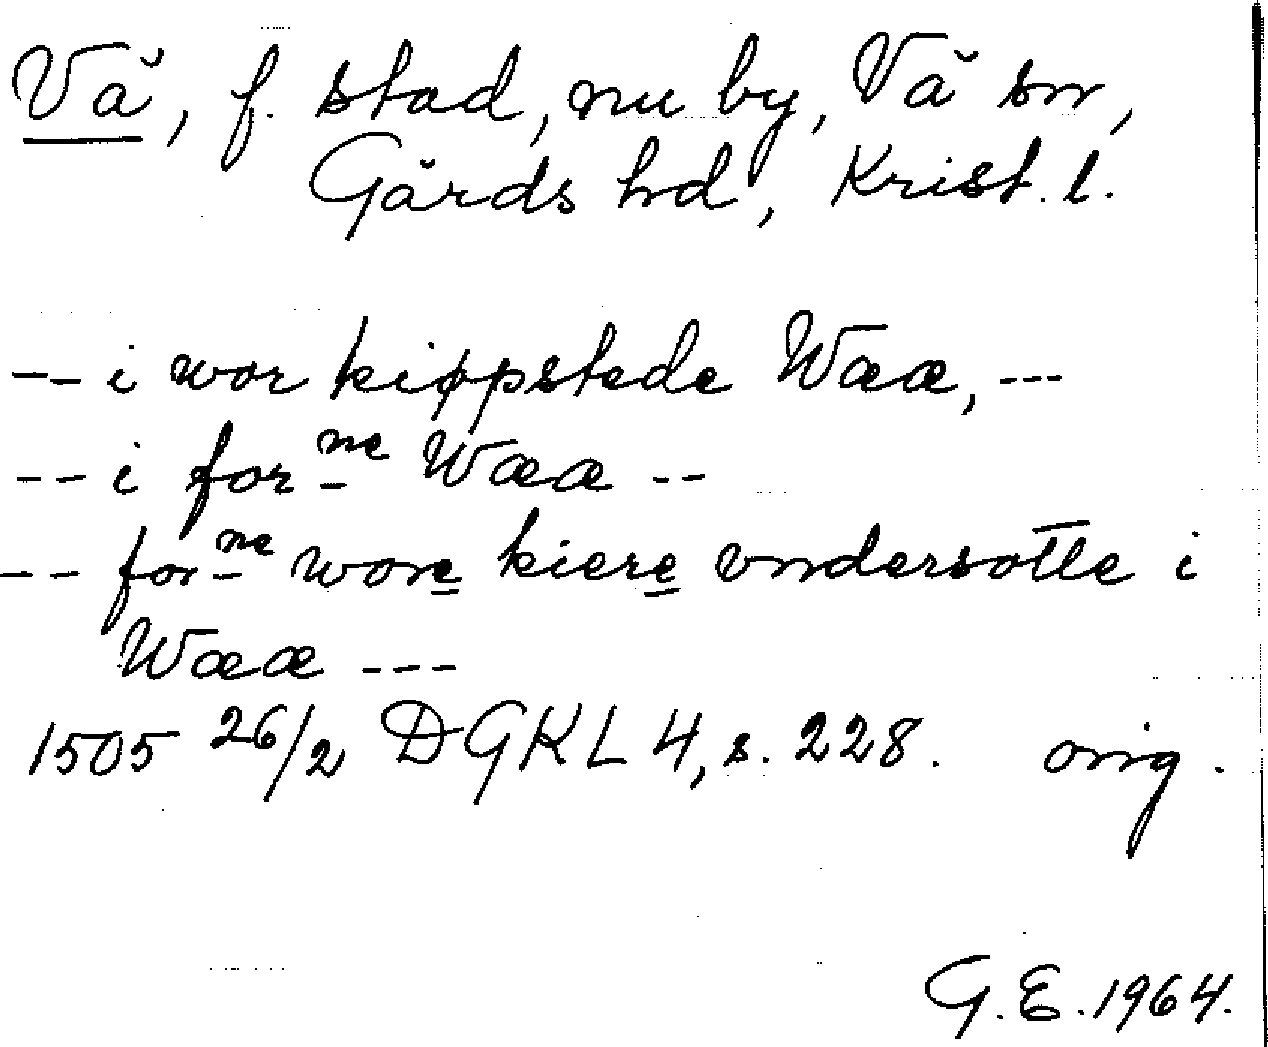 Vå, f. stad, nu by, Vå sn,
Gärds hd, Krist. l.
-- i wor kiøpstede Waa, ---
-- i for ne Waa --
-- for ne wore kiere vndersotte i
Waa ---
1505 26/2 DGKL 4, s. 228. orig.
G.E. 1964.